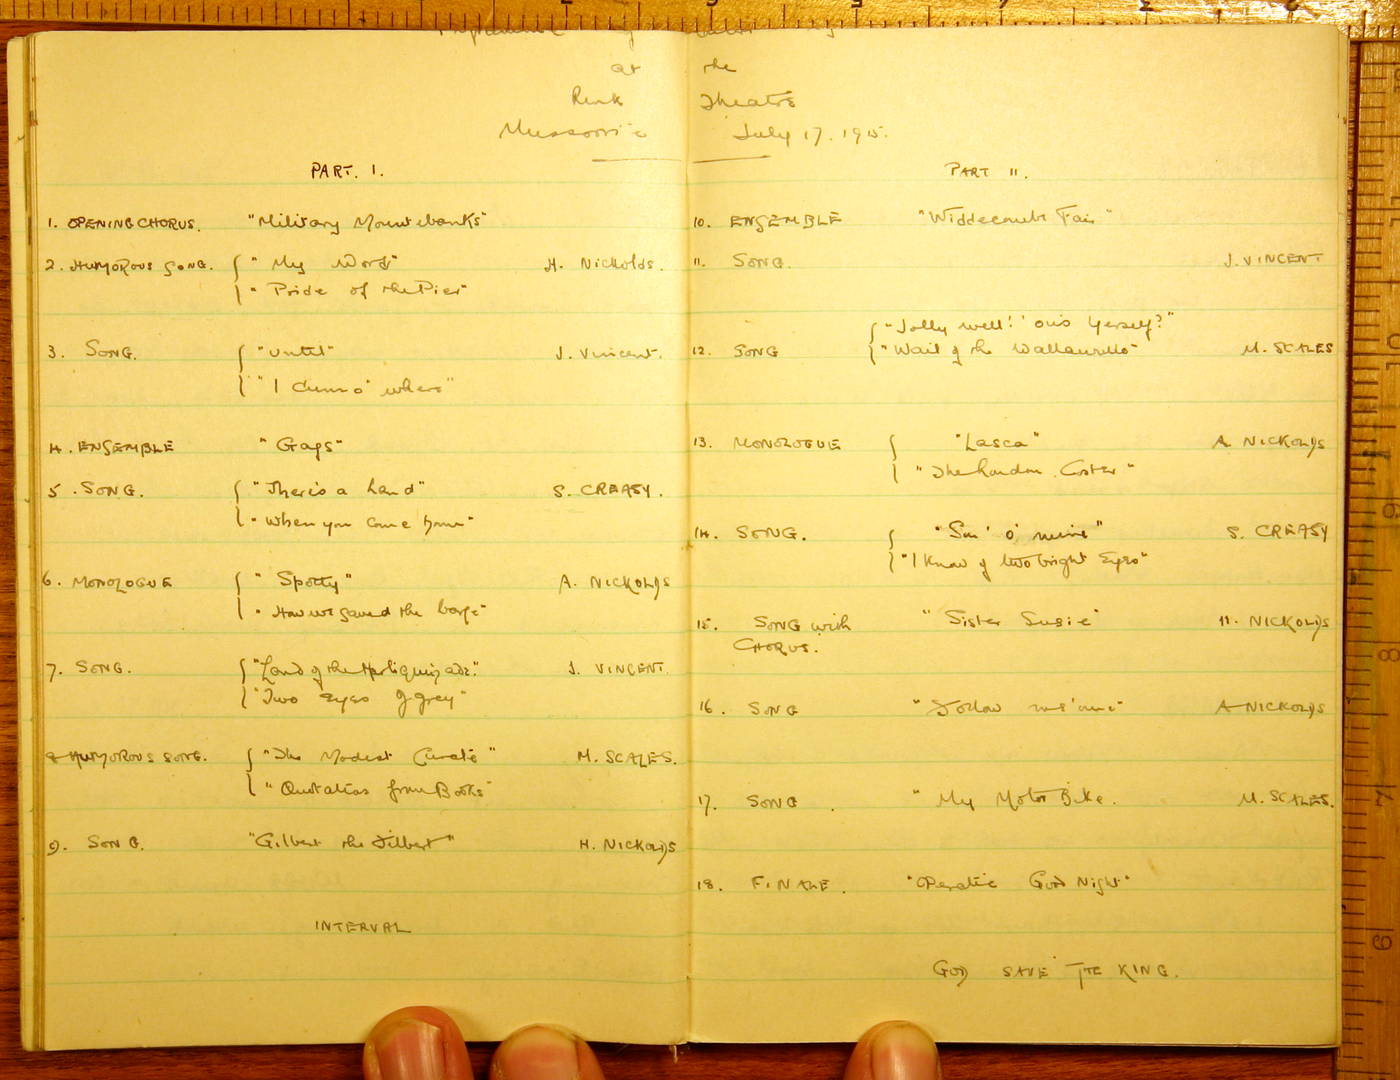 at the
Rink Theatre
Mussoorie July 17. 1915.
PART. I.
1. OPENING CHORUS. "Military Mountebanks"
2. HUMOROUS SONG. "My Word" H. Nickolds.
"Pride of the Pier"
3. SONG. "Until" J. Vincent.
"I dunno' where"
4. ENSEMBLE "Gags"
5. SONG. "There's a Land" S. CREASY.
"When you come home"
6. MONOLOGUE "Spotty" A. NICKOLDS
"How we saved the barge"
7. SONG. "Land of the" J. VINCENT.
"Two Eyes of grey"
8 HUMOROUS SONG. "The Modest Curate" M. SCALES.
"Quotations from Books"
9. SONG. "Gilbert the Filbert" H. NICKOLDS
INTERVAL
PART II.
10. ENSEMBLE "Widdecombe Fair"
11. SONG. J. VINCENT
"Jolly well! 'ows yerself?"
12. SONG "Wail of the" M. SCALES
13. MONOLOGUE "Lasca" A NICKOLDS
"The London Coster"
14. SONG. "Son' o' mine" S. CREASY
"I Know of two bright Eyes"
15. SONG with "Sister Susie" H. NICKOLDS
CHORUS.
16. SONG "Follow me 'ome" A NICKOLDS
17. SONG. "My Motor Bike. M. SCALES.
18. FINALE. "Operatic Good Night"
GOD SAVE THE KING.